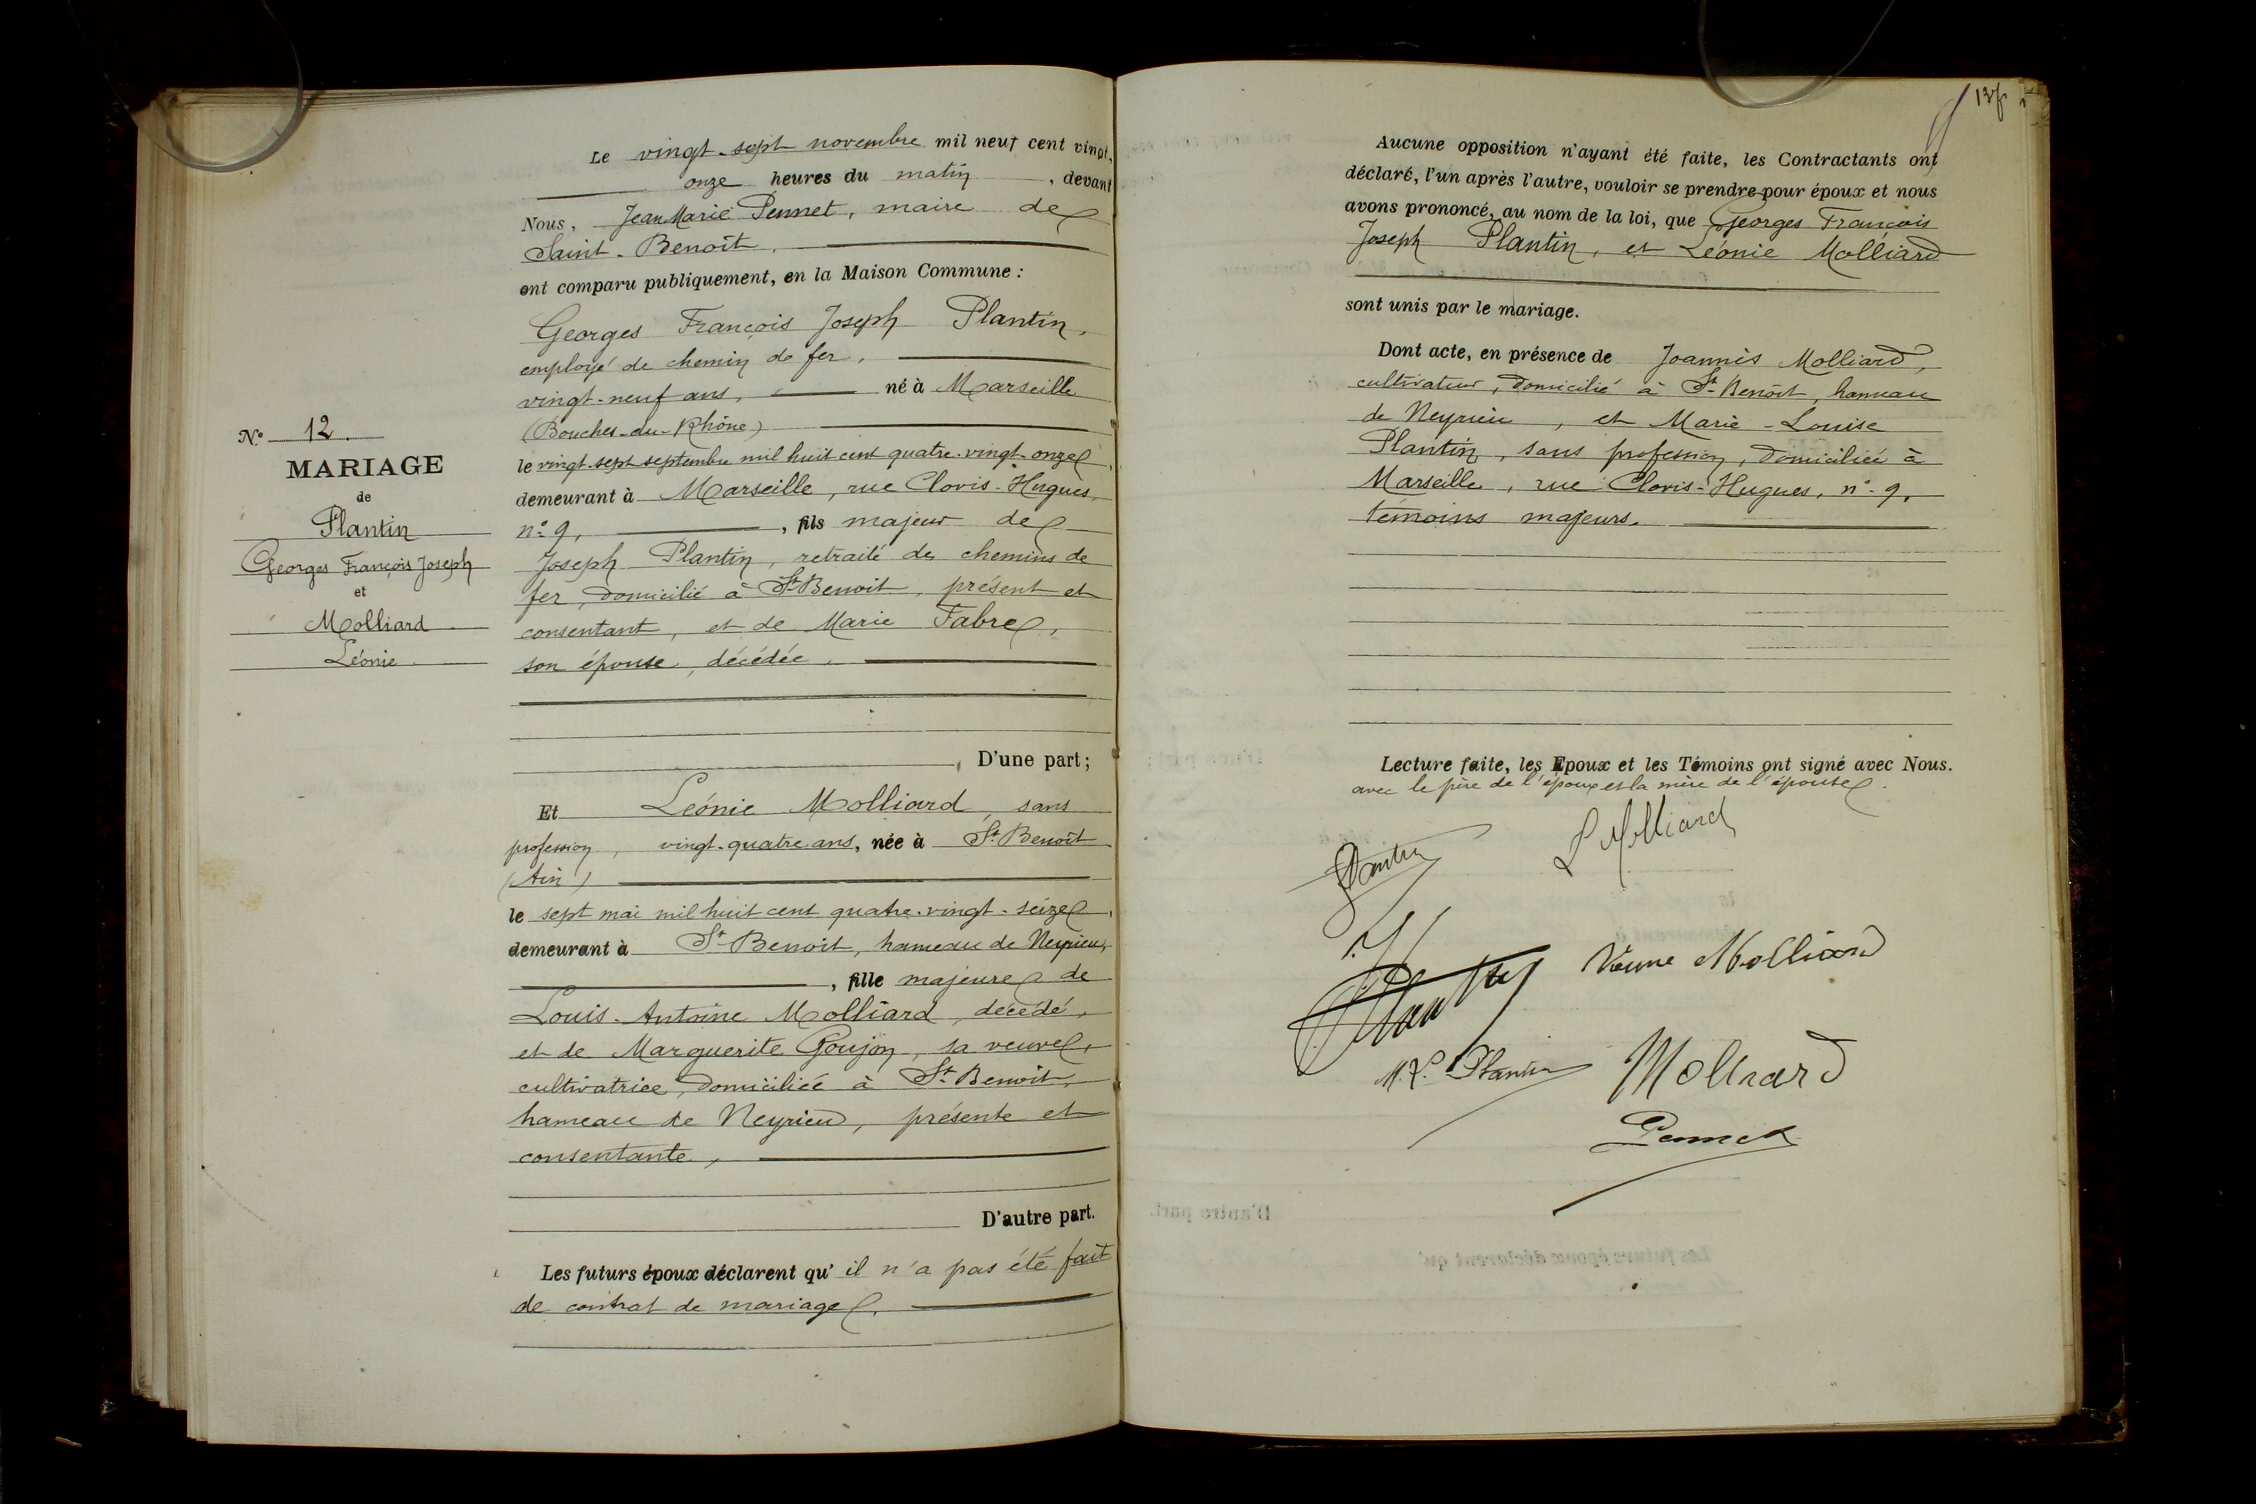 N° 12.
MARIAGE
de
Plantin
Georges François Joseph
et
Molliard
Léonie
Le vingt-sept novembre mil neuf cent vingt,
onze heures du matin, devant
Nous, Jean Marie Pennet, maire de
Saint-Benoît,
ont comparu publiquement, en la Maison Commune :
Georges François Joseph Plantin,
employé de chemin de fer,
vingt-neuf ans, né à Marseille
(Bouches-du-Rhône)
le vingt-sept septembre mil huit cent quatre-vingt-onze,
demeurant à Marseille, rue Clovis-Hugues,
n° 9, fils majeur de
Joseph Plantin, retraité des chemins de
fer, domicilié à St Benoit, présent et
consentant, et de Marie Fabre,
son épouse, décédée,
D'une part ;
Et Léonie Molliard, sans
profession, vingt-quatre ans, née à St Benoît
(Ain)
le sept mai mil huit cent quatre-vingt-seize,
demeurant à St-Benoit, hameau de Neyrieu,
, fille majeure de
Louis-Antoine Molliard, décédé,
et de Marguerite Goujon, sa veuve,
cultivatrice, domiciliée à St Benoit,
hameau de Neyrieu, présente et
consentante,
D'autre part.
Les futurs époux déclarent qu'il n'a pas été fait
de contrat de mariage.
137
Aucune opposition n'ayant été faite, les Contractants ont
déclaré, l'un après l'autre, vouloir se prendre pour époux et nous
avons prononcé, au nom de la loi, que Georges François
Joseph Plantin, et Léonie Molliard
sont unis par le mariage.
Dont acte, en présence de Joannès Molliard,
cultivateur, domicilié à St-Benoît, hameau
de Neyrieu, et Marie-Louise
Plantin, sans profession, domiciliée à
Marseille, rue Clovis-Hugues, n° 9,
témoins majeurs.
Lecture faite, les Epoux et les Témoins ont signé avec Nous.
avec le père de l'époux et la mère de l'épouse.
Plantin
L Molliard
Plantin
Veuve Molliard
M.L. Plantin
Molliard
Pennet